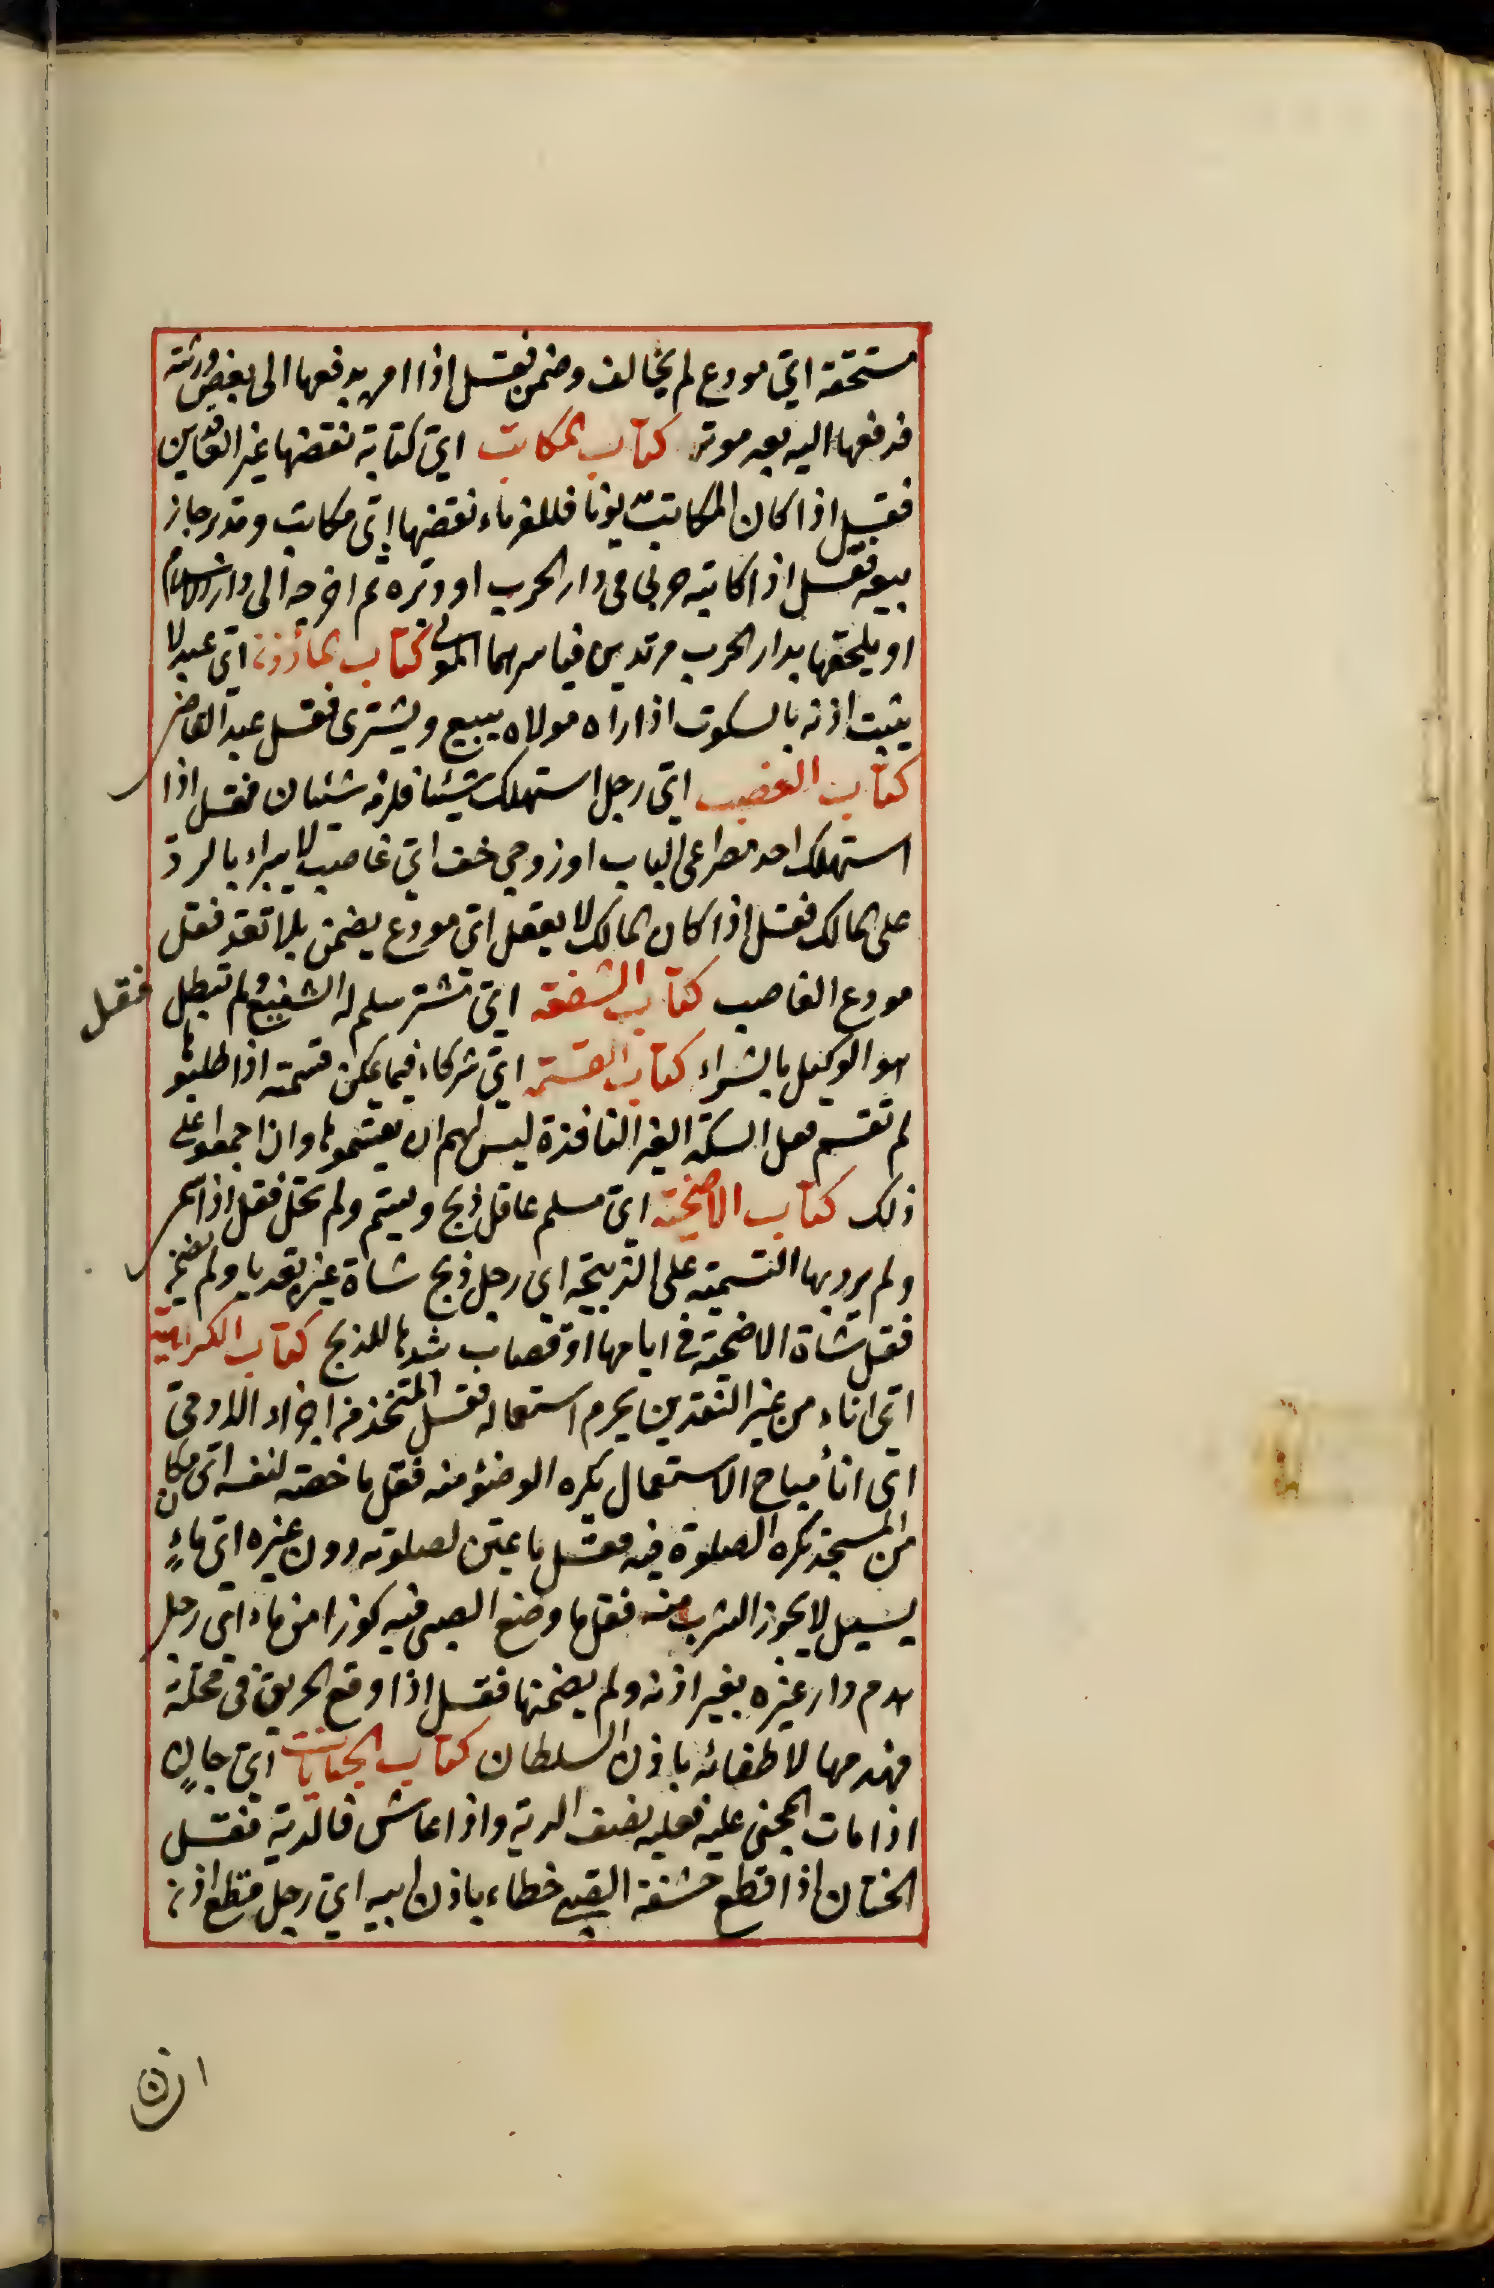 مستحقه اي مودع لم يخالف وضمن فقل اذا امره بدفعها الى بعض ورثته
فدفعها اليه بعد موته كتاب المكاتب اي كتابة نقضها غير العاقدين
فقل اذا كان المكاتب مديونا فللغرماء نقضها اي مكاتب ومدبر جاز
بيعه فقل اذا كاتبه حربي في دار الحرب او دبره ثم اخرجه الى دار الاسلام
او يلحقها بدار الحرب مرتدين فياسرهما المولى كتاب المأذون اي عبد لا
يثبت اذنه بالسكوت اذا راه مولاه يبيع ويشترى فقل عبد القاضي
كتاب الغصب اي رجل استهلك شيئا فلزمه شيئان فقل اذا
استهلك احد مصراعى الباب او زوجي خف اي غاصب لا يبراء بالرد
على المالك فقل اذا كان المالك لا يعقل اي مودع يضمن بلا تعد فقل
مودع الغاصب كتاب الشفعة اي مشتر سلم له الشفيع ولم تبطل فقل
هو الوكيل بالشراء كتاب القسمة اي شركاء فيما يمكن قسمته اذا طلبوها
لم تقسم فقل السكة الغير النافذة ليس لهم ان يقتسموها وان اجمعوا على
ذلك كتاب الاضحية اي مسلم عاقل ذبح وسمى ولم تحل فقل اذا سمى
ولم يرد بها التسمية على الذبيحة اي رجل ذبح شاة غيره تعديا ولم يضمن
فقل شاة الاضحية في ايامها او قصاب شدها للذبح كتاب الكراهية
اي اناء من غير النقدين يحرم استعماله فقل المتخذ من اجزاء الادمي
اي اناء مباح الاستعمال يكره الوضوء منه فقل ما خصته لنفسه اي مكان
من المسجد تكره الصلوة فيه فقل ما عينه لصلوته دون غيره اي ماء
يسيل لا يجوز الشرب منه فقل ما وضع الصبي فيه كوزا من ماء اي رجل
هدم دار غيره بغير اذنه ولم يضمنها فقل اذا وقع الحريق في محلة
فهدمها لاطفائه باذن السلطان كتاب الجنايات اي جان
اذا مات المجني عليه فعليه نصف الدية واذا عاش فالدية فقل
الختان اذا قطع حشفة الصبي خطاء باذن ابيه اي رجل قطع اذن
اذن